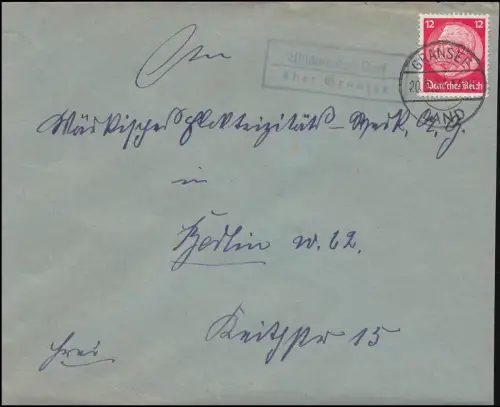 12 12
Deutsches Reich
GRANSEE
20.
LAND
über Gransee
An
Märkisches Elektrizitäts-Werk, A. G.
in
Berlin W. 62.
Keithstr 15
frei